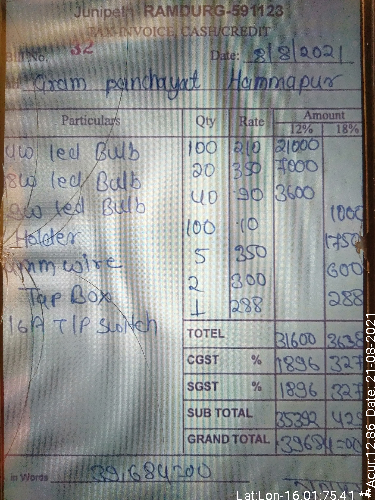 Junipeth RAMDURG-591123
TAX INVOICE, CASH/CREDIT
No. 32 Date: 8/8/2021
Gram panchayat Hammapur
Particulars Qty Rate Amount
12% 18%
led Bulb 100 210 21000
led Bulb 20 350 7000
led Bulb 40 90 3600
Holder 100 10 1000
wire 5 350 1750
Tap Box 2 300 600
16A T/P switch 1 288 288
TOTEL 31600 3638
CGST % 1896 327
SGST % 1896 327
SUB TOTAL 35392 429
GRAND TOTAL 39684=00
in Words 39,684=00
Lat:Lon-16.01:75.41 **Acur:12.86 Date: 21-08-2021